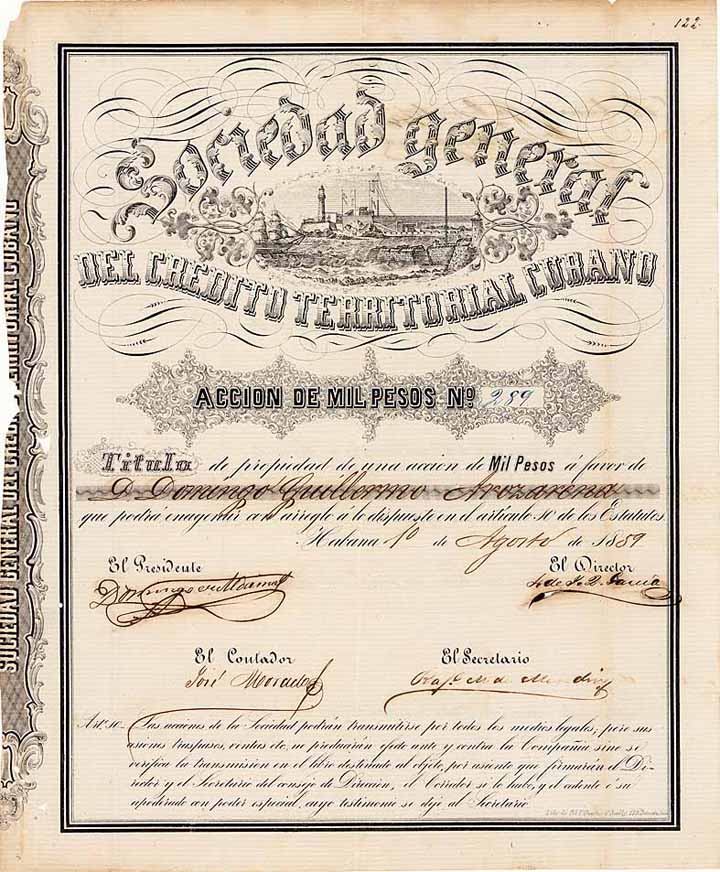 122
Sociedad general
DEL CREDITO TERRITORIAL CUBANO
ACCION DE MIL PESOS Nº 289
Titulo de propiedad de una accion de Mil Pesos á favor de
D. Domingo Guillermo Arozarena
que podrá enagenar con arreglo á lo dispuesto en el artículo 10 de los Estatutos.
Habana 1º de Agosto de 1859
El Presidente
El Director
El Contador
El Secretario
José Morales
Art. 10. Las acciones de la Sociedad podrán transmitirse por todos los medios legales; pero sus
cesiones, traspasos, ventas etc. no producirán efecto ante y contra la Compañia sino se
verifica la transmision en el libro destinado al objeto, por asiento que firmarán el Di-
rector y el Secretario del consejo de Direccion, el Corredor si lo hubo, y el cedente ó su
apoderado con poder especial, cuyo testimonio se deje al Secretario.
SOCIEDAD GENERAL DEL CREDITO TERRITORIAL CUBANO